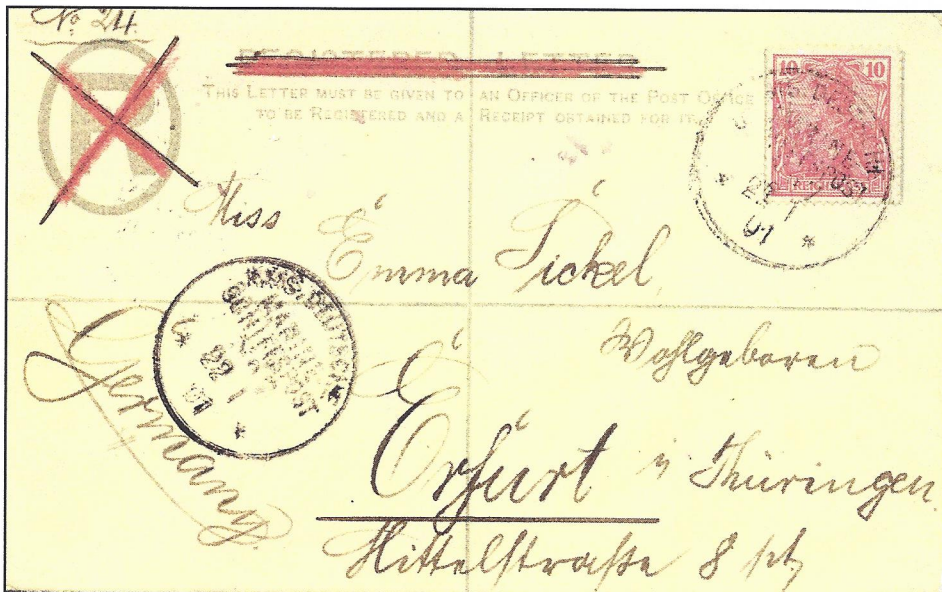 No 24.
R
REGISTERED LETTER
THIS LETTER MUST BE GIVEN TO AN OFFICER OF THE POST OFFICE
TO BE REGISTERED AND A RECEIPT OBTAINED FOR IT.
10 10
REICHSPOST
22 1
01
Miss
Emma Fickel,
KAIS. DEUTSCHE
MARINE-
SCHIFFSPOST
22 1
01
Wohlgeboren
Erfurt i Thüringen.
Mittelstraße 8 pt
Germany.